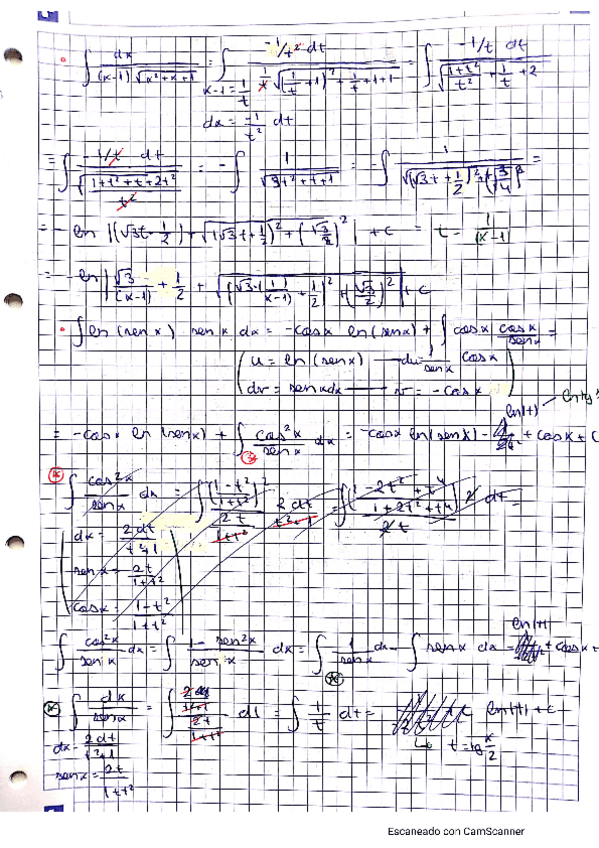 ∫ dx / ((x-1) √(x²+x+1)) = ∫ (-1/t² dt) / (1/t √((1/t+1)²+1/t+1+1)) = ∫ (-1/t dt) / √((1+t²)/t² + 1/t + 2)
x-1 = 1/t
dx = -1/t² dt
= ∫ (-1/t dt) / √((1+t²+t+2t²)/t²) = -∫ 1/√(3t²+t+1) = -∫ 1/√((√3t+1/2)²+(√3/4)²) =
= - ln |(√3t+1/2)+√((√3t+1/2)²+(√3/2)²)| + C = t = 1/(x-1)
= - ln |√3/(x-1) + 1/2 + √((√3·(1/(x-1))+1/2)²+(√3/2)²)| + C
∫ ln (sen x) sen x dx = -cosx ln (senx) + ∫ cosx cosx/senx =
u = ln (sen x) — du = 1/senx cosx
dv = senxdx — v = -cosx
ln|t|
= -cosx ln (senx) + ∫ cos²x/senx dx = -cosx ln (senx) - + cosx + C
∫ cos²x/senx dx = ∫ ((1-t²)/(1+t²))² / (2t/(1+t²)) 2dt/(t²+1) = ∫ ((1-2t²+t⁴)/(1+2t²+t⁴)) / 2t 2 dt =
dx = 2dt/(t²+1)
senx = 2t/(1+t²)
cosx = (1-t²)/(1+t²)
ln|t|
∫ cos²x/senx dx = ∫ (1-sen²x)/senx dx = ∫ 1/senx dx - ∫ senx dx = + cosx +
∫ dx/senx = ∫ (2dt/(t²+1)) / (2t/(1+t²)) dt = ∫ 1/t dt = ln|t| + C
dx = 2dt/(t²+1)
t = tg x/2
senx = 2t/(1+t²)
Escaneado con CamScanner